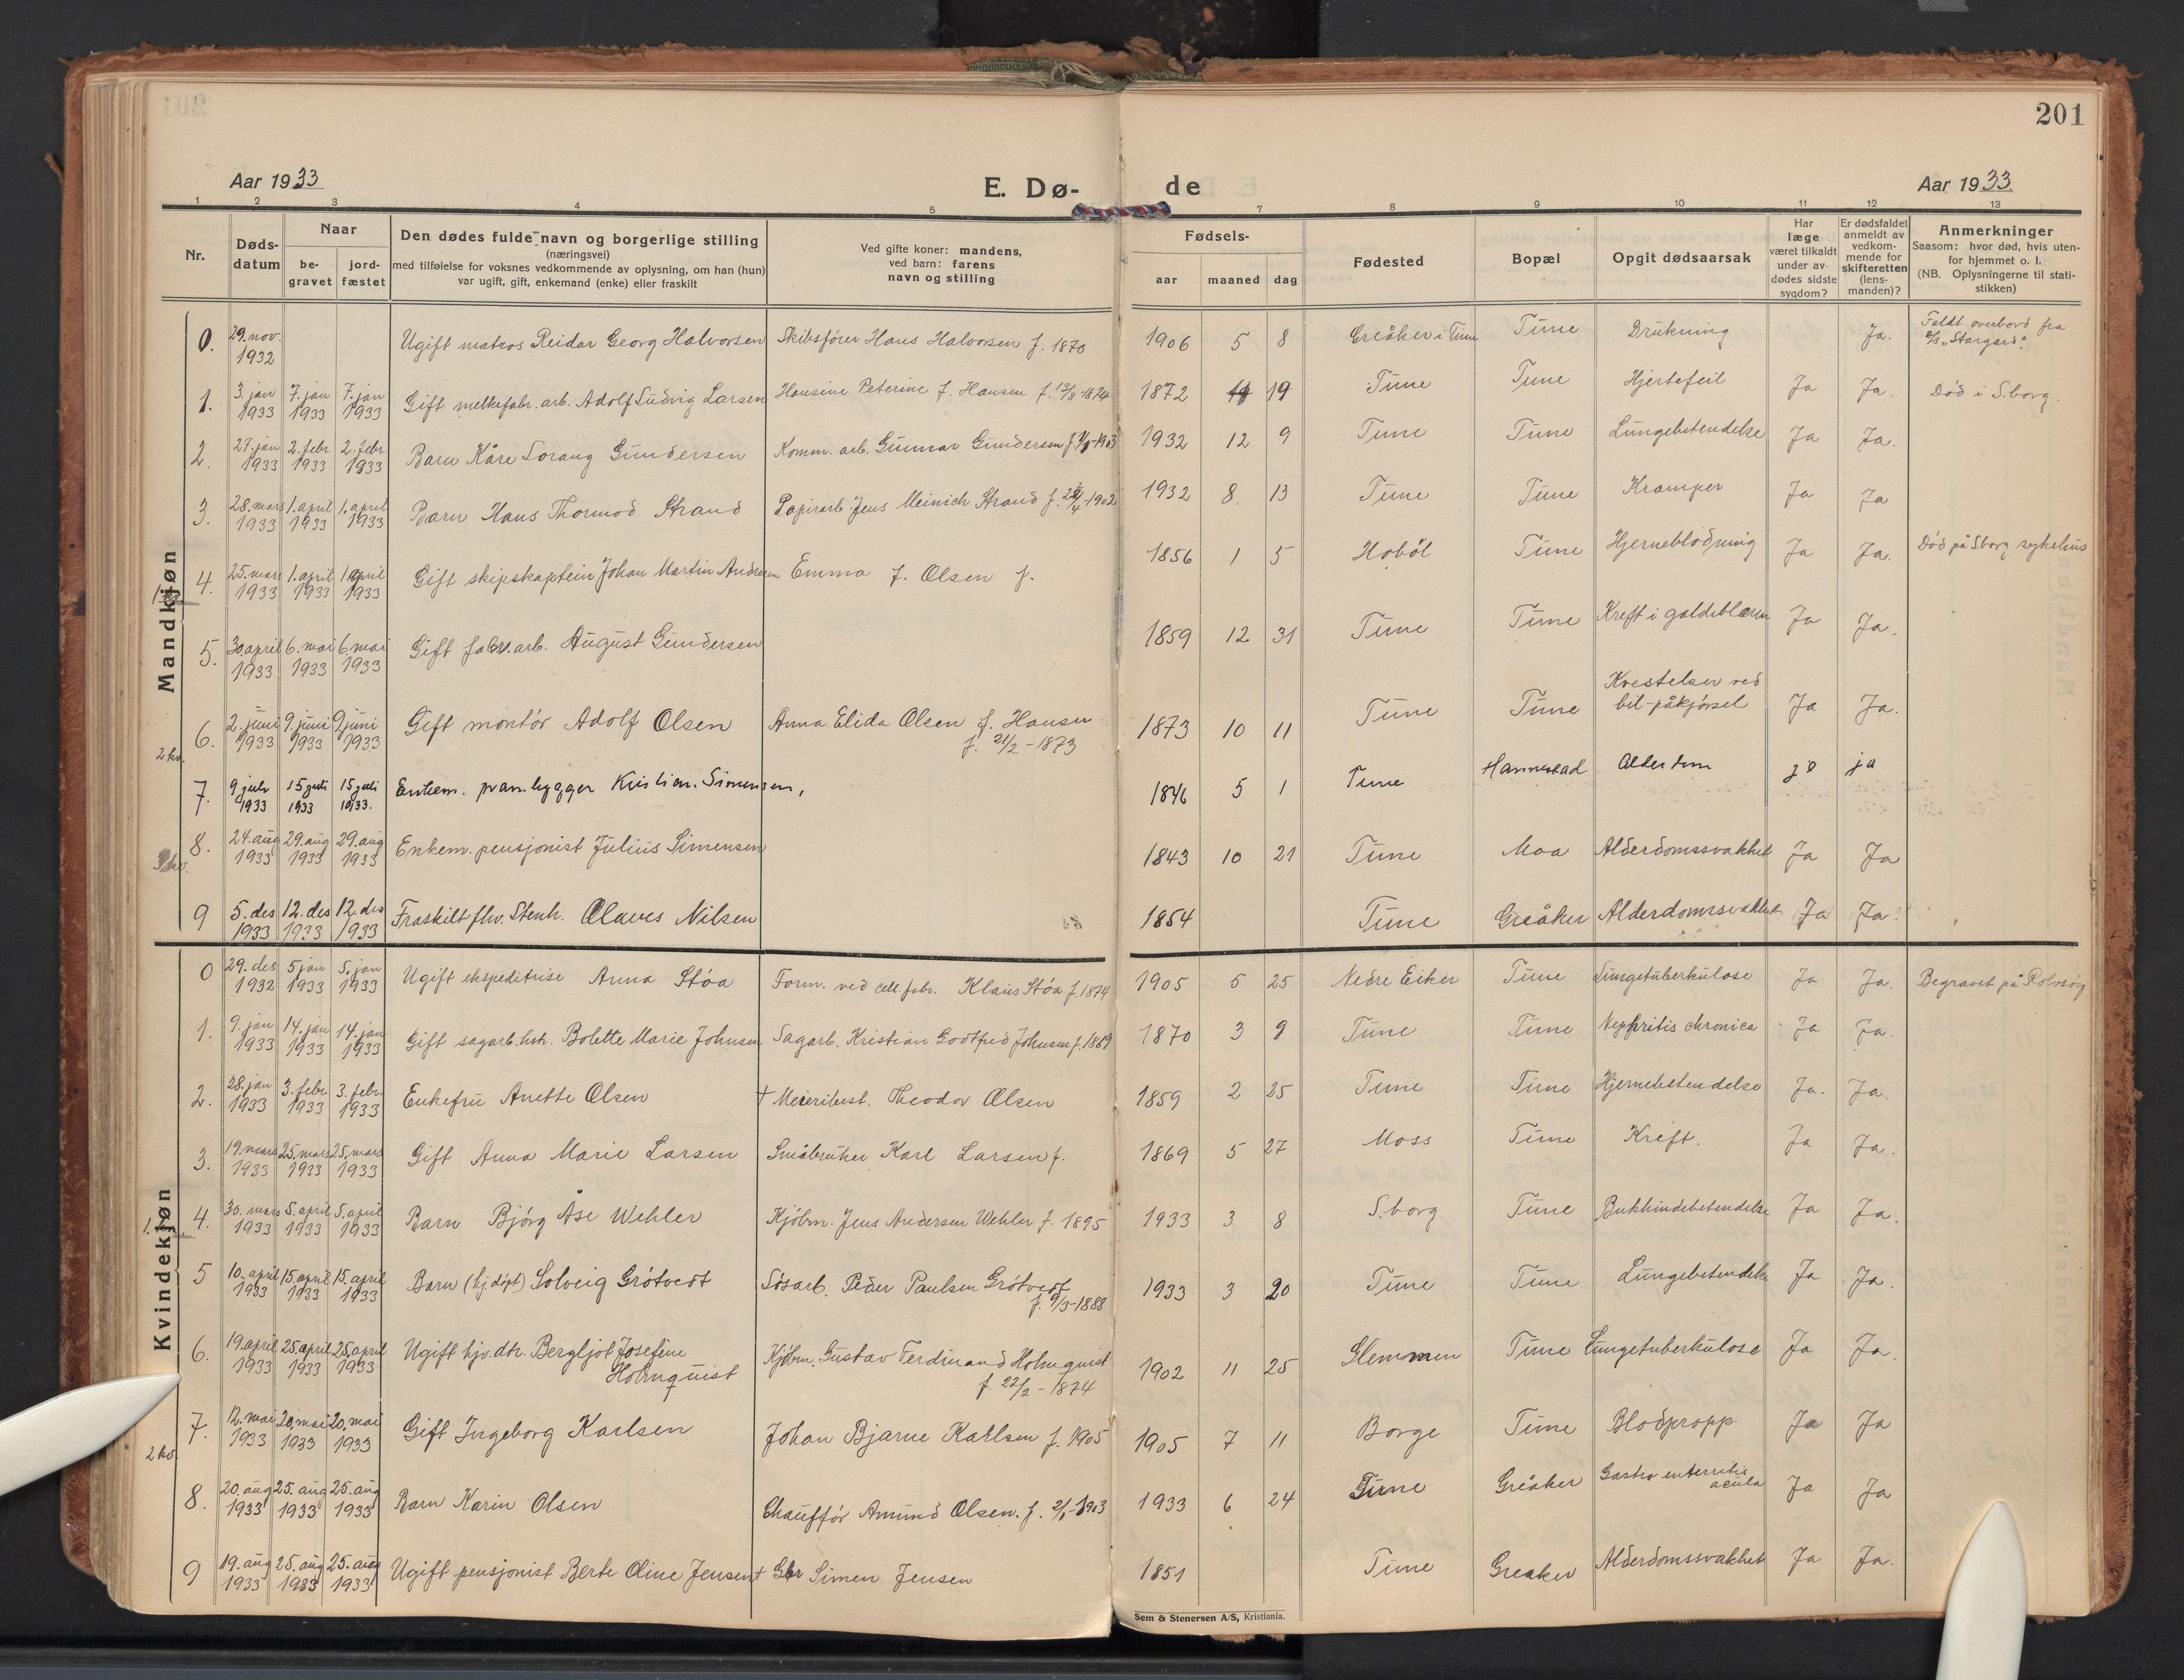 201
Aar 1933
E. Dø- de
Aar 1933
1 2 3 4 5 7 8 9 10 11 12 13
Nr.
Døds-
datum
Naar
be-
gravet
jord-
fæstet
Den dødes fulde navn og borgerlige stilling
(næringsvei)
med tilføielse for voksnes vedkommende av oplysning, om han (hun)
var ugift, gift, enkemand (enke) eller fraskilt
Ved gifte koner: mandens,
ved barn: farens
navn og stilling
Fødsels-
aar maaned dag
Fødested
Bopæl
Opgit dødsaarsak
Har
læge
været tilkaldt
under av-
dødes sidste
sygdom?
Er dødsfaldet
anmeldt av
vedkom-
mende for
skifteretten
(lens-
manden)?
Anmerkninger
Saasom: hvor død, hvis uten-
for hjemmet o. l.
(NB. Oplysningerne til stati-
stikken)
Mandkjøn
0. 29. nov. 1932 Ugift matros Reidar Georg Halvorsen Skibsfører Hans Halvorsen f. 1870 1906 5 8 Greåker i Tune Tune Drukning Ja. Faldt overbord fra D/S „Stargard".
1. 3. jan 1933 7. jan 1933 7. jan 1933 Gift melkefabr. arb. Adolf Ludvig Larsen Hansine Peterine f. Hansen f. 13/8-1874 1872 19 Tune Tune Hjertefeil Ja Ja. Død i S.borg.
2. 27. jan 1933 2. febr. 1933 2. febr. 1933 Barn Kåre Lorang Gundersen Komm. arb. Gunnar Gundersen 1932 12 9 Tune Tune Lungebetendelse Ja Ja.
3. 28. mars 1933 1. april 1933 1. april 1933 Barn Hans Thormod Strand Papirarb. Jens Meinich Strand 1932 8 13 Tune Tune Kramper Ja Ja
4. 25. mars 1933 1. april 1933 1. april 1933 Gift skipskaptein Johan Martin Andresen Emma f. Olsen f. 1856 1 5 Hobøl Tune Hjerneblødning Ja Ja. Død på S.borg sykehus
5. 30. april 1933 6. mai 1933 6. mai 1933 Gift fabr. arb. August Gundersen 1859 12 31 Tune Tune Kreft i galdeblæren Ja Ja.
6. 2. juni 1933 9. juni 1933 9. juni 1933 Gift montør Adolf Olsen Anna Elida Olsen f. Hansen f. 21/2-1873 1873 10 11 Tune Tune Kvestelser ved bil-påkjørsel Ja Ja.
2 kv.
7. 9 juli 1933 15 juli 1933 15 juli 1933. Enkem. prambygger Kristian Simensen, 1846 5 1 Tune Hannestad Alderdom ja ja
8. 24. aug 1933 29. aug 1933 29. aug 1933 Enkem. pensjonist Julius Simensen 1843 10 21 Tune Moa Alderdomssvakhet Ja Ja
3 kv.
9 5. des 1933 12. des 1933 12. des 1933 Fraskilt fhv. Stenh. Olaves Nilsen 1854 Tune Greåker Alderdomssvakhet Ja Ja.
Kvindekjøn
0 29. des 1932 5 jan 1933 5. jan 1933 Ugift ekspeditrise Anna Støa Form. ved cell. fabr. Klaus Støa f. 1874 1905 5 25 Nedre Eiker Tune Lungetuberkulose Ja Ja. Begravet på Rolvsøy
1. 9. jan 1933 14. jan 1933 14. jan 1933 Gift sagarb. hst. Bolette Marie Johnsen Sagarb. Kristian Godtfred Johnsen f. 1869 1870 3 9 Tune Tune Nephritis chronica Ja Ja.
2. 28. jan 1933 3. febr. 1933 3. febr. 1933 Enkefru Anette Olsen † Meieribest. Theodor Olsen 1859 2 25 Tune Tune Hjernebetendelse Ja. Ja.
3. 19. mars 1933 25. mars 1933 25. mars 1933 Gift Anna Marie Larsen Småbruker Karl Larsen f. 1869 5 27 Moss Tune Kreft. Ja Ja.
4. 30. mars 1933 5. april 1933 5. april 1933 Barn Bjørg Åse Wehler Kjøbm. Jens Andersen Wehler f. 1895 1933 3 8 S.borg Tune Bukhindebetendelse Ja Ja.
5 10. april 1933 15. april 1933 15. april 1933 Barn (hj.døpt) Solveig Grøtvedt Løsarb. Peder Paulsen Grøtvedt f. 9/3-1888 1933 3 20 Tune Tune Lungebetendelse Ja Ja.
6. 19. april 1933 25. april 1933 25. april 1933 Ugift hjv. dtr. Bergljot Josefine Holmquist Kjøbm. Gustav Ferdinand Holmquist f. 22/2-1874 1902 11 25 Glemmen Tune Lungetuberkulose Ja Ja.
7. 12. mai 1933 20. mai 1933 20. mai 1933 Gift Ingeborg Karlsen Johan Bjarne Karlsen f. 1905 1905 7 11 Borge Tune Blodpropp. Ja Ja
2 kv.
8. 20. aug 1933 25. aug 1933 25. aug 1933 Barn Karin Olsen Chauffør Amund Olsen. f. 2/1-1903 1933 6 24 Tune Greåker Gastro enterritis acuta Ja Ja
9 19. aug 1933 25. aug 1933 25. aug 1933 Ugift pensjonist Berte Oline Jensen † Gbr Simen Jensen 1851 Tune Greaker Alderdomssvakhet Ja Ja.
Sem & Stenersen A/S, Kristiania.